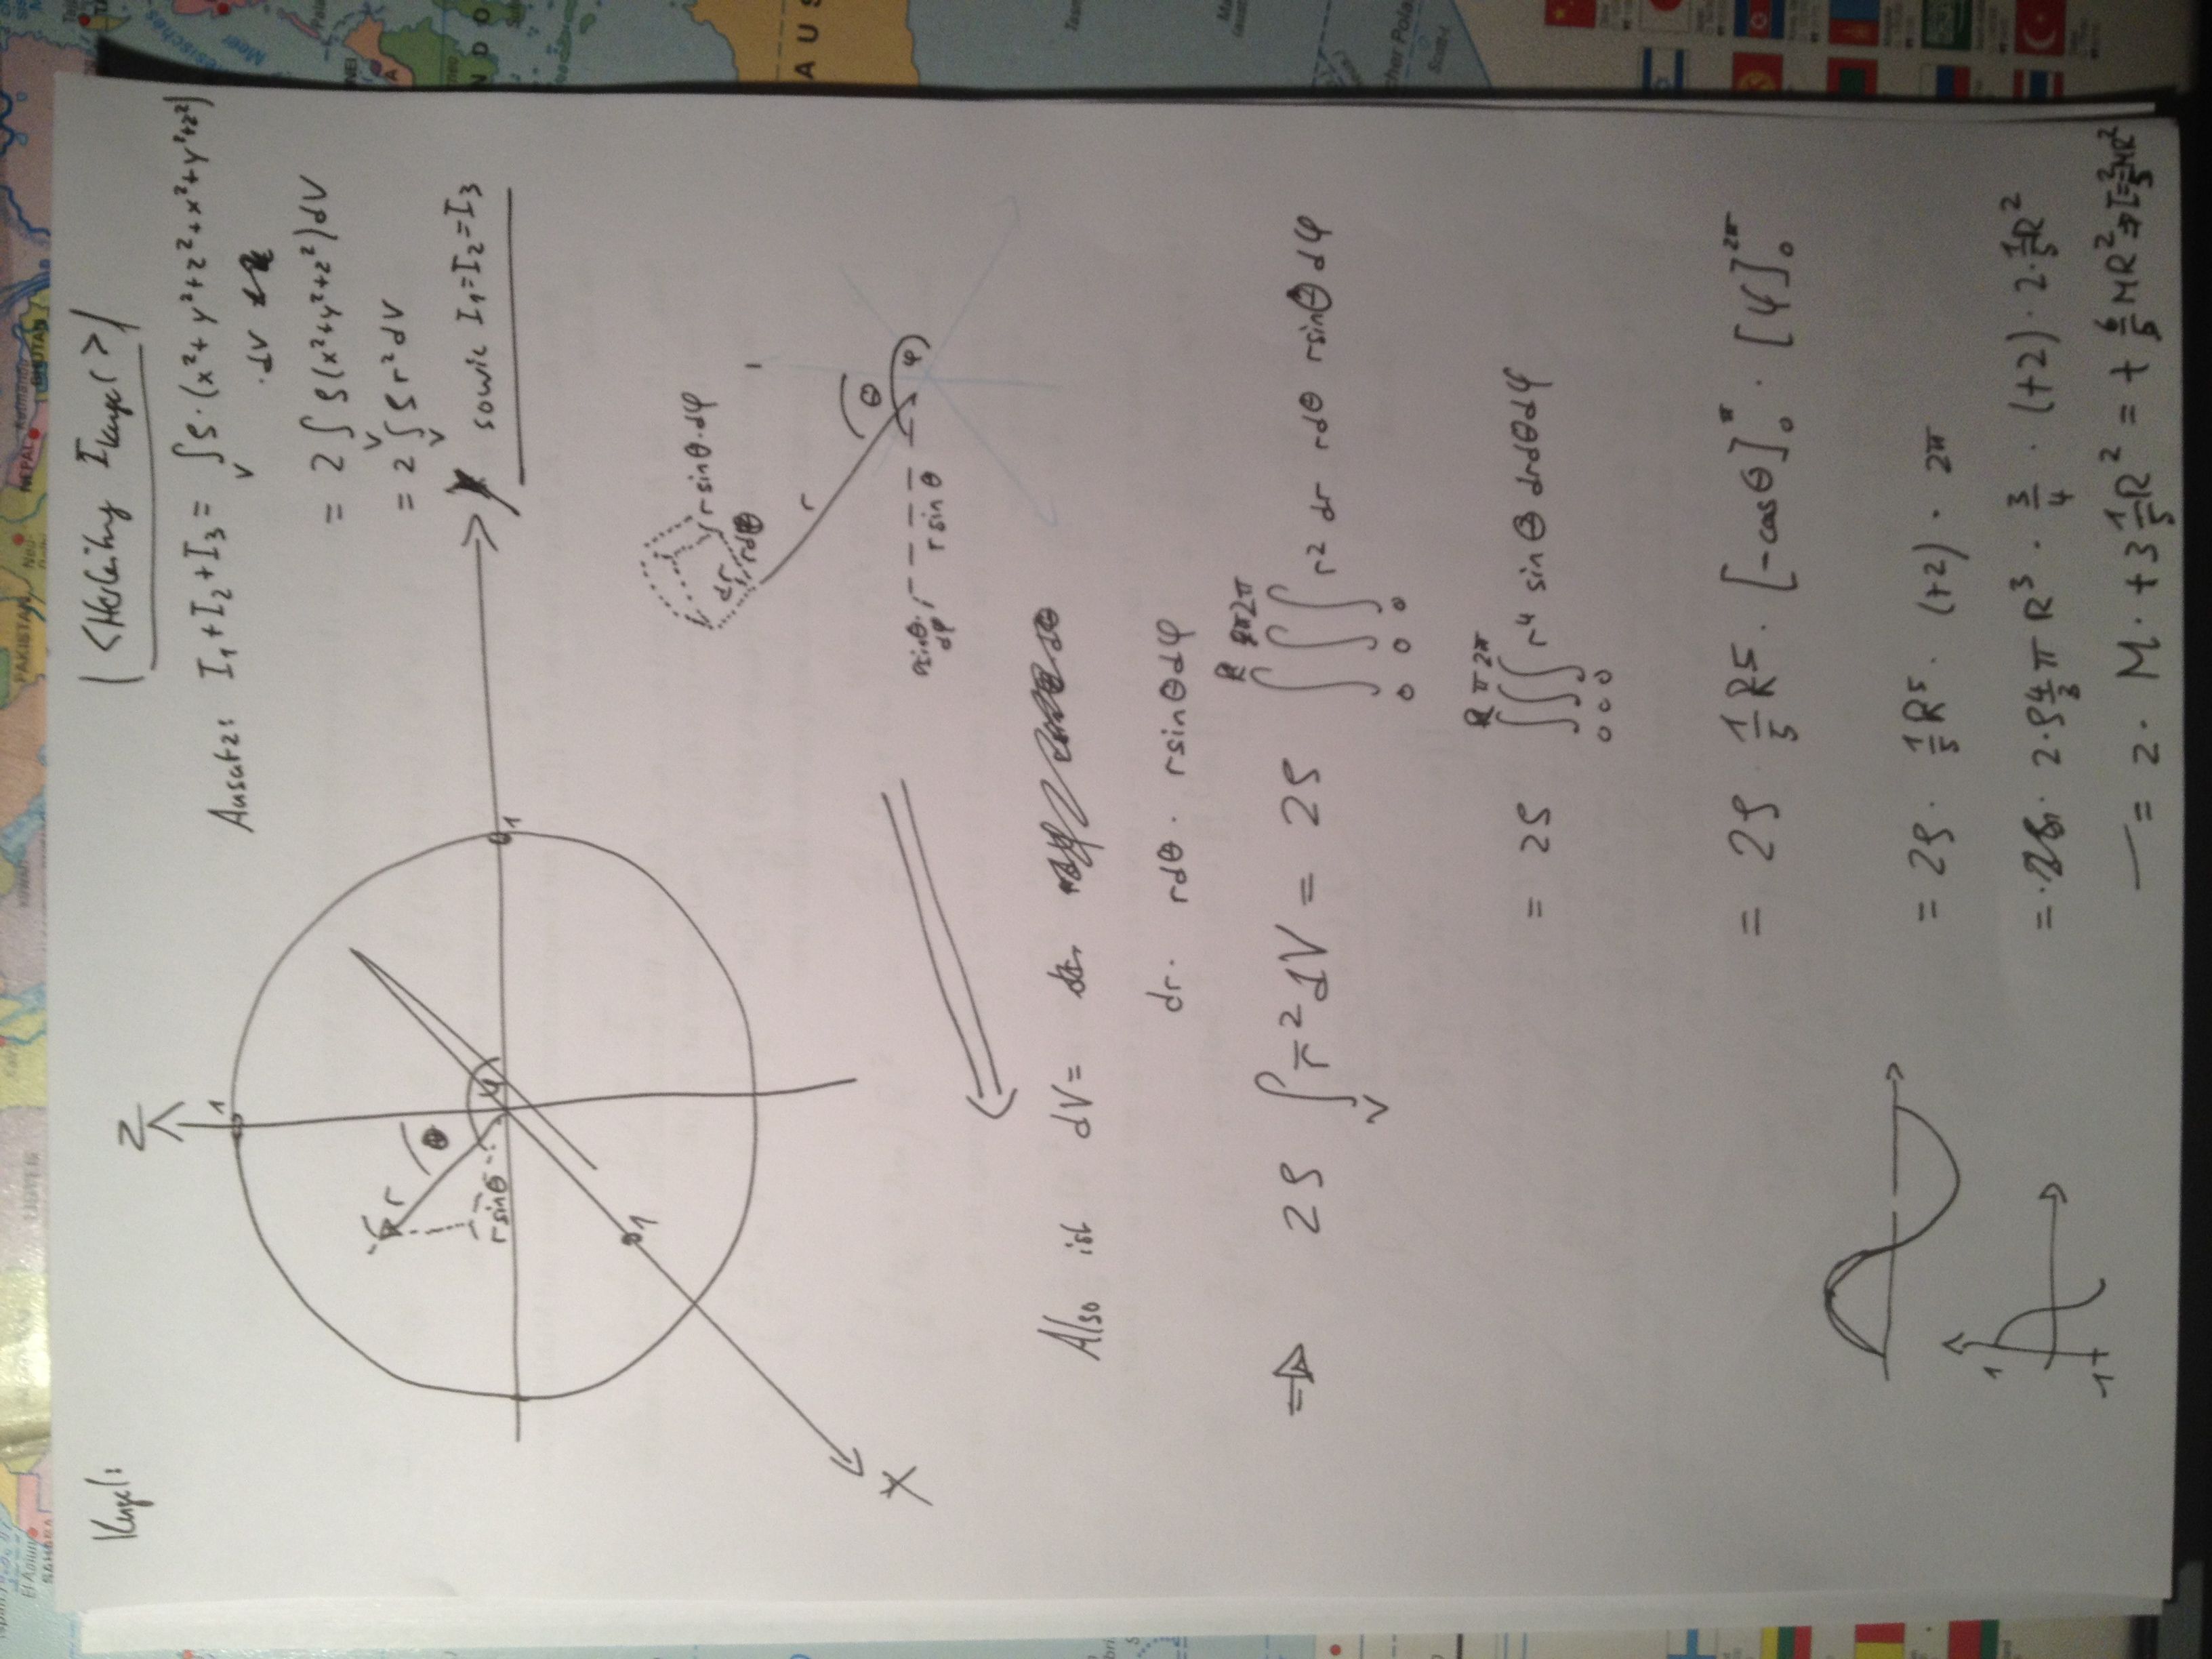 Kugel:
<Herleitung I_Kugel>
Ansatz: I₁+I₂+I₃ = ∫_V ρ·(x²+y²+z²+x²+y²+z²)
·dV
= 2 ∫_V ρ(x²+y²+z²)dV
= 2 ∫_V ρ r² dV
sowie I₁=I₂=I₃
Z
1
θ
r
r sinθ
φ
1
1
X
r sinθ·dφ
dr
rdθ
r
θ
φ
r sinθ
r sinθ·
dφ
Also ist dV =
dr · rdθ · r sinθdφ
⇒ 2ρ ∫_V r² dV = 2ρ ∫₀^R ∫₀^π ∫₀^2π r² dr rdθ r sinθ dφ
= 2ρ ∫₀^R ∫₀^π ∫₀^2π r⁴ sinθ drdθdφ
= 2ρ · 1/5 R⁵ · [-cosθ]₀^π · [φ]₀^2π
= 2ρ · 1/5 R⁵ · (+2) · 2π
= 2·ρ 4/3 π R³ · 3/4 · (+2) · 2·1/5 R²
= 2 · M · +3 1/5 R² = + 6/5 MR² ⇒ I = 2/5 MR²
1
-1
NEPAL
BHUTAN
PAKISTAN
AUS